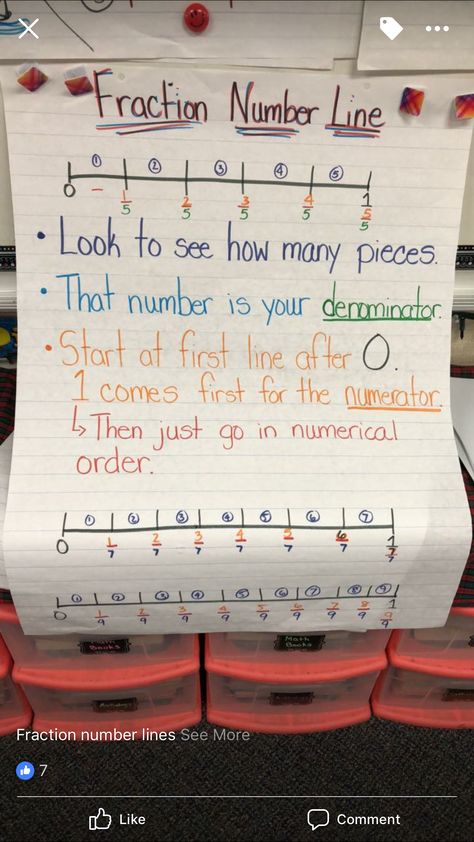 Fraction Number Line
① ② ③ ④ ⑤
0 - 1/5 2/5 3/5 4/5 1 5/5
• Look to see how many pieces.
• That number is your denominator.
• Start at first line after 0.
1 comes first for the numerator.
↳ Then just go in numerical
order.
① ② ③ ④ ⑤ ⑥ ⑦
0 1/7 2/7 3/7 4/7 5/7 6/7 1 7/7
① ② ③ ④ ⑤ ⑥ ⑦ ⑧ ⑨
0 1/9 2/9 3/9 4/9 5/9 6/9 7/9 8/9 1 9/9
Math
Books
Math
Books
Fraction number lines See More
7
Like Comment